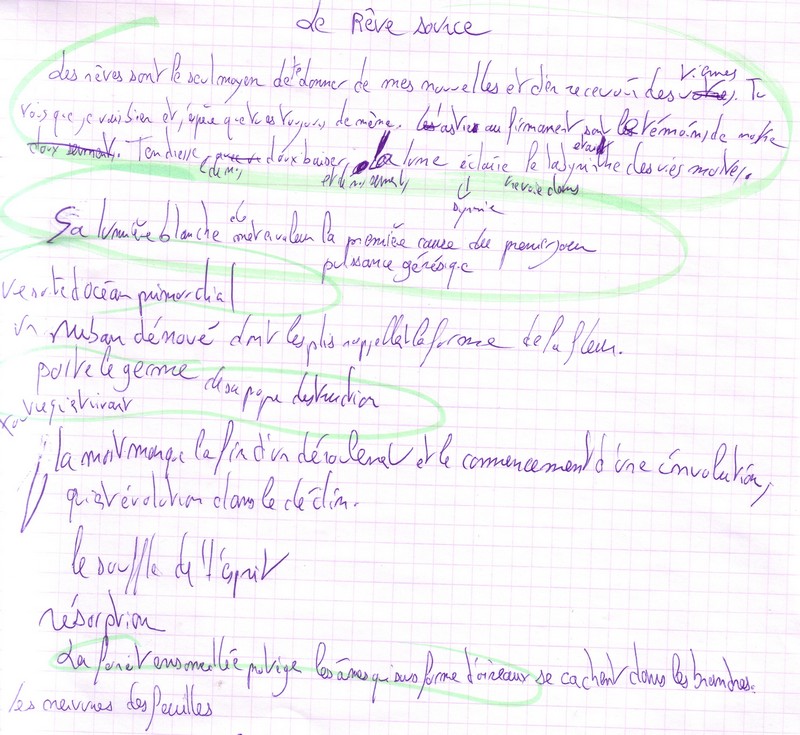 de Rêve source
des rêves sont le seul moyen de te donner de mes nouvelles et d'en recevoir des vôtres. Tu
vois que je vais bien et j'espère que tu es toujours de même. les astres au firmament sont les témoins de notre
doux serments. Tendresse, doux baiser, la lune éclaire le labyrinthe des vies mortes.
et de mes serments renvoie dans
Sa lumière blanche et la première cause du premier jour
puissance génésique
océan primordial
un ruban dénoué dont les plis rappellent la forme de la fleur.
porte le germe de sa propre destruction
tout ce qui est vivant
la mort marque la fin d'un déroulement et le commencement d'une involution,
qui est évolution dans le déclin.
le souffle de l'esprit
résorption
La forêt ensommeillée protège les âmes qui sous forme d'oiseaux se cachent dans les branches.
les murmures des feuilles